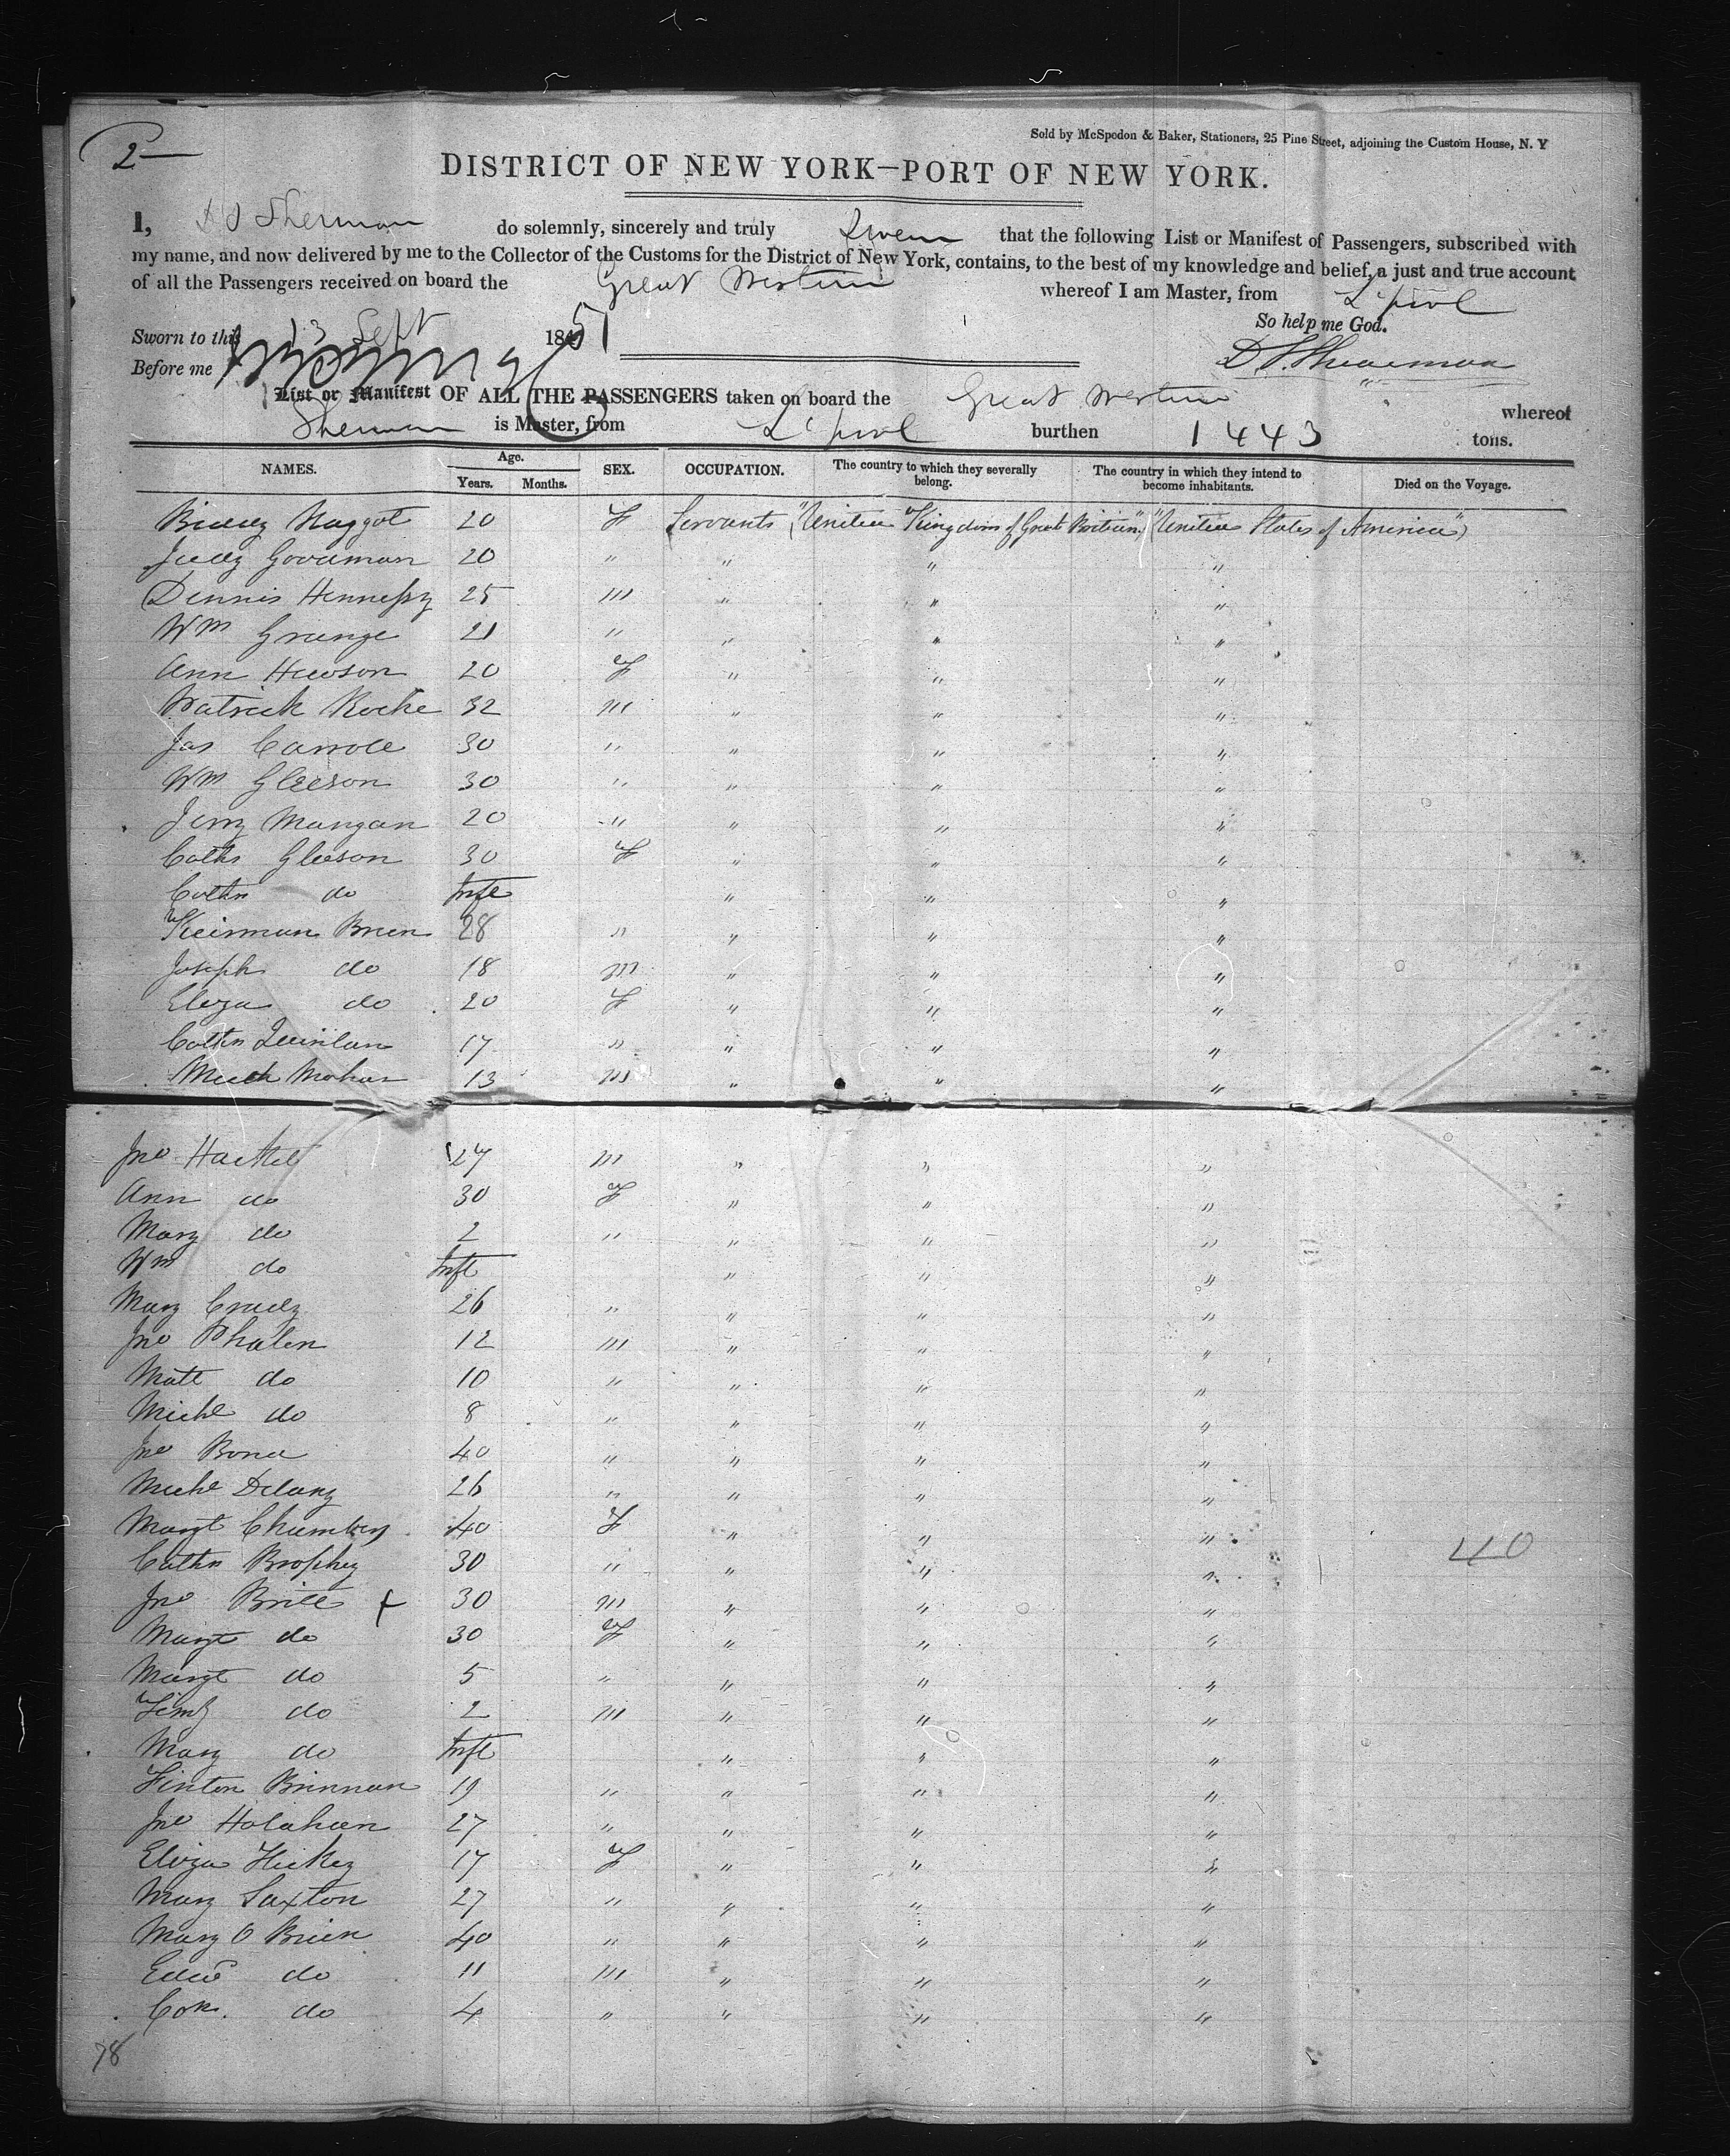 2
Sold by McSpedon & Baker, Stationers, 25 Pine Street, adjoining the Custom House, N. Y
DISTRICT OF NEW YORK—PORT OF NEW YORK.
I, Sherman do solemnly, sincerely and truly Swear that the following List or Manifest of Passengers, subscribed with
my name, and now delivered by me to the Collector of the Customs for the District of New York, contains, to the best of my knowledge and belief, a just and true account
of all the Passengers received on board the Great Western whereof I am Master, from L'pool
So help me God.
Sworn to this 13 Sept 1851
Before me
List or Manifest OF ALL THE PASSENGERS taken on board the Great Western whereof
Sherman is Master, from L'pool burthen 1443 tons.
NAMES. Age. Years. Months. SEX. OCCUPATION. The country to which they severally belong. The country in which they intend to become inhabitants. Died on the Voyage.
Biddy Naggot 20 F Servants "United Kingdom of Great Britain" "United States of America"
Judy Goodman 20 " " " "
Dennis Hennessy 25 M " " "
Wm Grange 21 " " " "
Ann Hewson 20 F " " "
Patrick Roche 32 M " " "
Jas Carroll 30 " " " "
Wm Gleeson 30 " " " "
Jerry Mangan 20 " " " "
Cathn Gleeson 30 F " " "
Cathn do Inft " " "
Brien 28 " " " "
Joseph do 18 M " " "
Eliza do 20 F " " "
Cathn Quinlan 17 " " " "
Mahar 13 M " " "
Jno 27 M " " "
Ann do 30 F " " "
Mary do 2 " " " "
Wm do Inft " " "
Mary Crudy 26 " " " "
Jno Phalen 12 M " " "
Matt do 10 " " " "
Michl do 8 " " " "
Jno Bond 40 " " " "
Michl Delany 26 " " " "
Margt 40 F " " "
Cathn Brophy 30 " " " "
Jno Britt 30 M " " "
Margt do 30 F " " "
Margt do 5 " " " "
Timy do 2 M " " "
Mary do Inft " " "
Finton Brennan 19 " " " "
Jno Holahan 27 " " " "
Eliza Hickey 17 F " " "
Mary Saxton 27 " " " "
Mary O Brien 40 " " " "
Edwd do 11 M " " "
Corn. do 4 " " " "
40
78